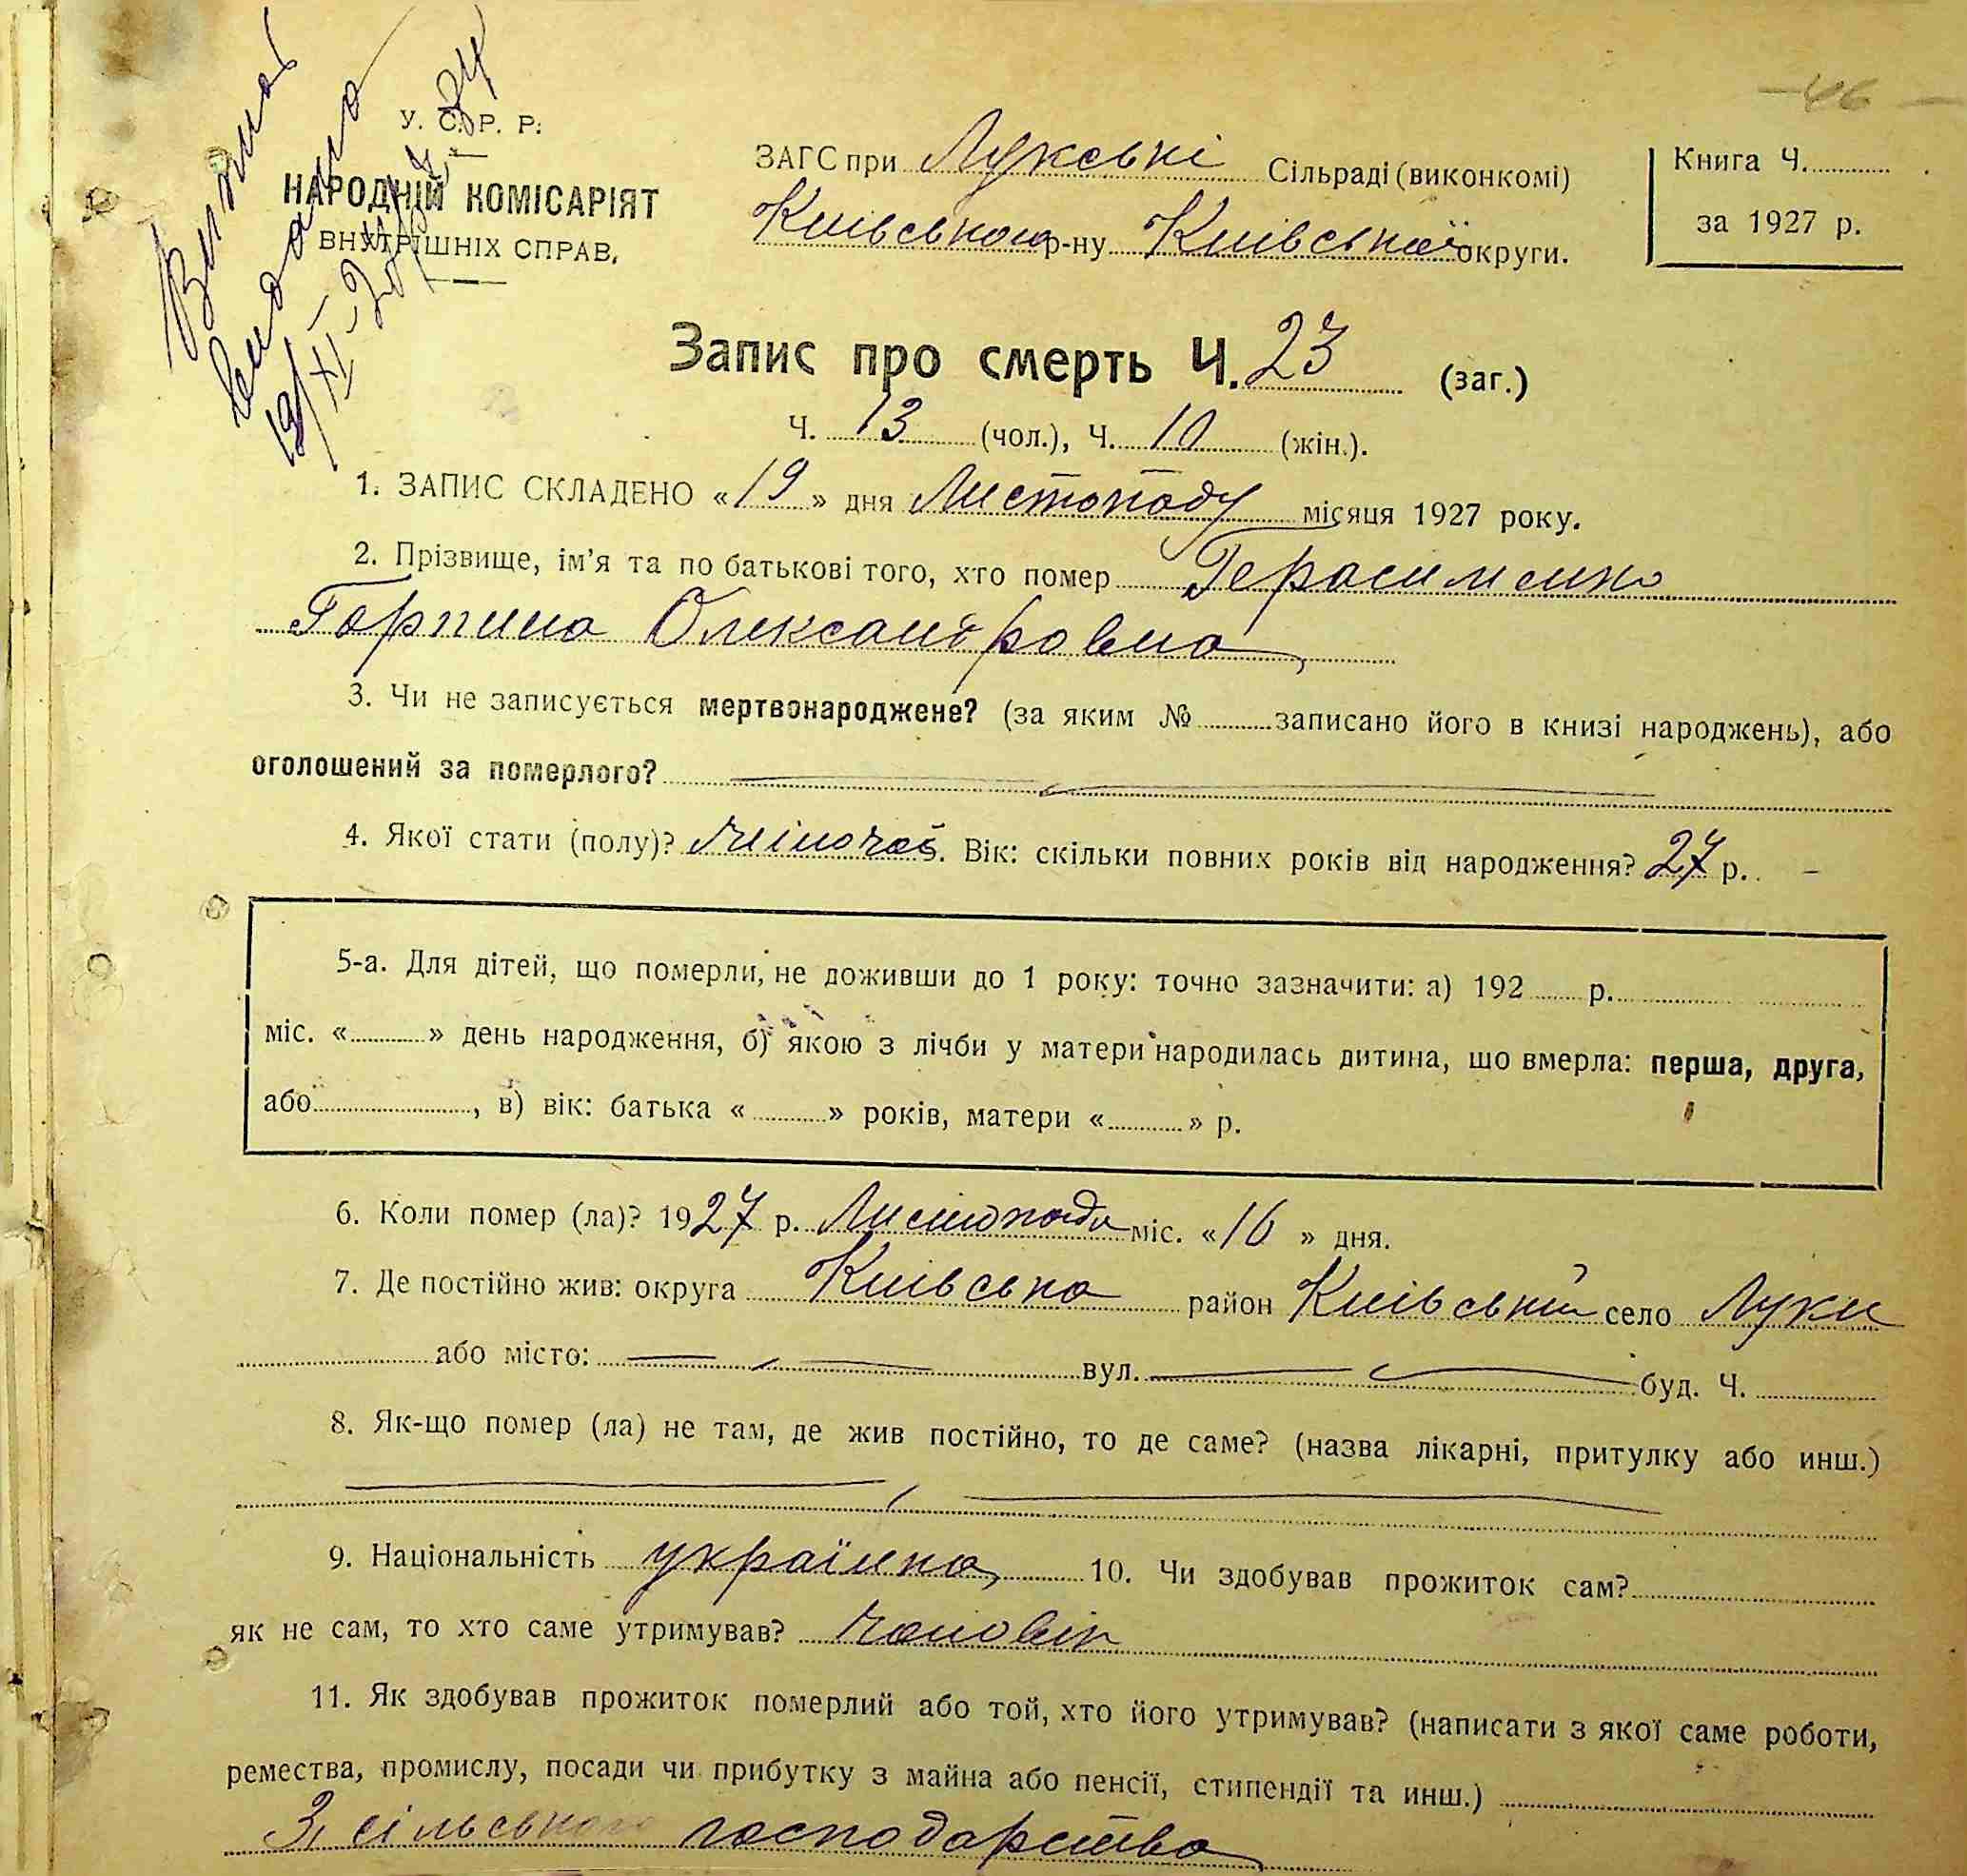 — 46 —
У. С. Р. Р.
НАРОДНІЙ КОМІСАРІЯТ
ВНУТРІШНІХ СПРАВ.
Витяг
видано
ЗАГС при Лукські Сільраді (виконкомі)
Київського р-ну Київської округи.
Книга Ч.
за 1927 р.
Запис про смерть Ч. 23 (заг.)
Ч. 13 (чол.), Ч. 10 (жін.).
1. ЗАПИС СКЛАДЕНО «19» дня Листопаду місяця 1927 року.
2. Прізвище, ім'я та по батькові того, хто помер Герасименко
Горпина Олександровна
3. Чи не записується мертвонароджене? (за яким № записано його в книзі народжень), або
оголошений за померлого?
4. Якої стати (полу)? жіночої. Вік: скільки повних років від народження? 27 р.
5-а. Для дітей, що померли, не доживши до 1 року: точно зазначити: а) 192 р.
міс. « » день народження, б) якою з лічби у матери народилась дитина, що вмерла: перша, друга,
або , в) вік: батька « » років, матери « » р.
6. Коли помер (ла)? 1927 р. Листопада міс. «16» дня.
7. Де постійно жив: округа Київська район Київський село Луки
або місто: — вул. — буд. Ч.
8. Як-що помер (ла) не там, де жив постійно, то де саме? (назва лікарні, притулку або инш.)
9. Національність українка, 10. Чи здобував прожиток сам?
як не сам, то хто саме утримував? чоловік
11. Як здобував прожиток померлий або той, хто його утримував? (написати з якої саме роботи,
ремества, промислу, посади чи прибутку з майна або пенсії, стипендії та инш.)
З сільського господарства